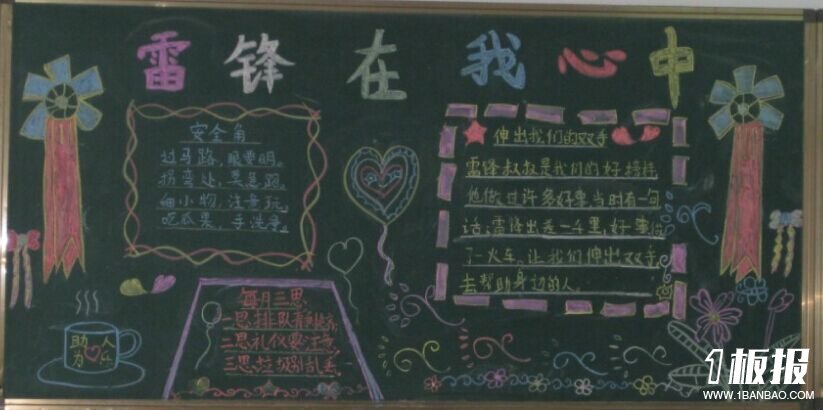 雷锋在我心中
安全角
过马路，眼要明。
拐弯处，莫急跑。
细小物，注意玩。
吃瓜果，手洗净。
伸出我们的双手
雷锋叔叔是我们的好榜样
他做过许多好事当时有一句
话：雷锋出差一千里，好事做
了一火车。让我们伸出双手
去帮助身边的人。
每月三思
一思排队有
二思礼仪要注意
三思垃圾别乱丢
助人
为乐
1板报
WWW.1BANBAO.COM